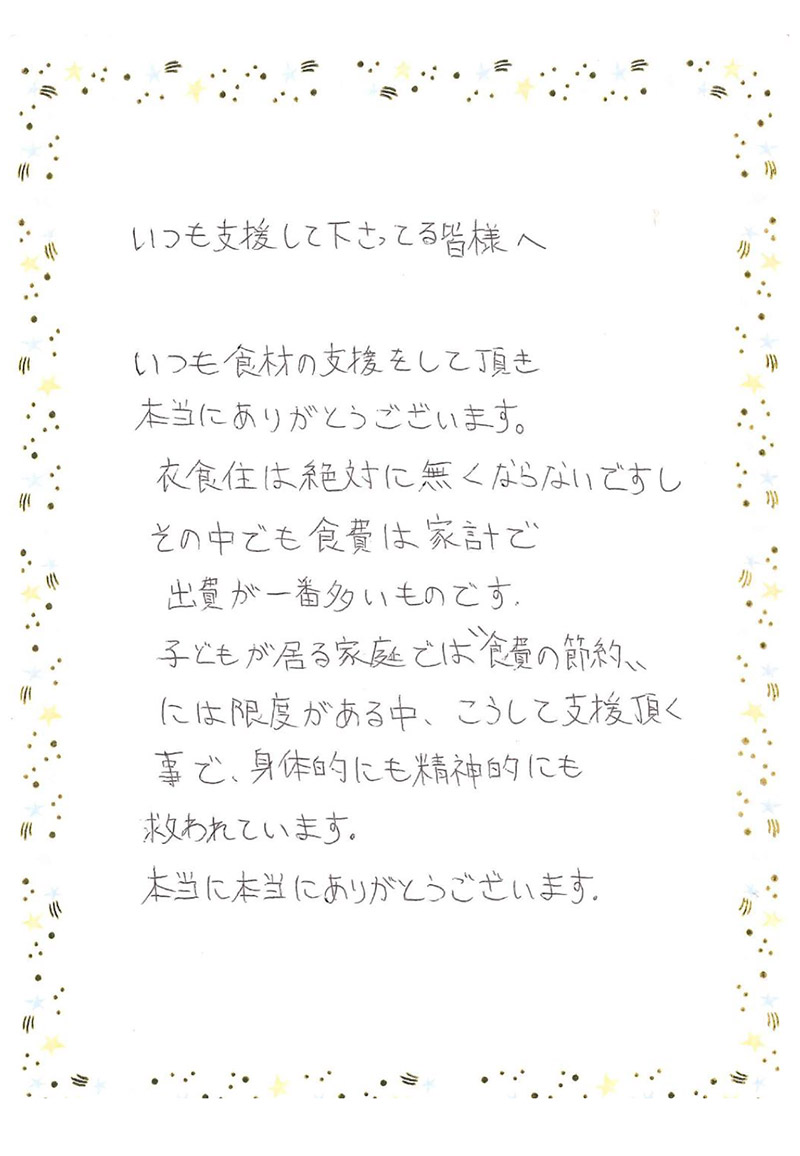 いつも支援して下さってる皆様へ
いつも食材の支援をして頂き
本当にありがとうございます。
衣食住は絶対に無くならないですし
その中でも食費は家計で
出費が一番多いものです.
子どもが居る家庭では〝食費の節約〟
には限度がある中、こうして支援頂く
事で、身体的にも精神的にも
救われています。
本当に本当にありがとうございます.